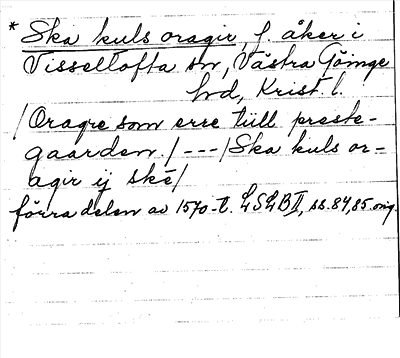 * Ska kuls oragir, f. åker i
Visseltofta sn, Västra Göinge
hd, Krist. l.
/Oragre som erre tiill preste-
gaarden./ --- /Ska kuls or-
agir ij ske/
förra delen av 1570-t. LSLB II, ss. 84, 85. orig.